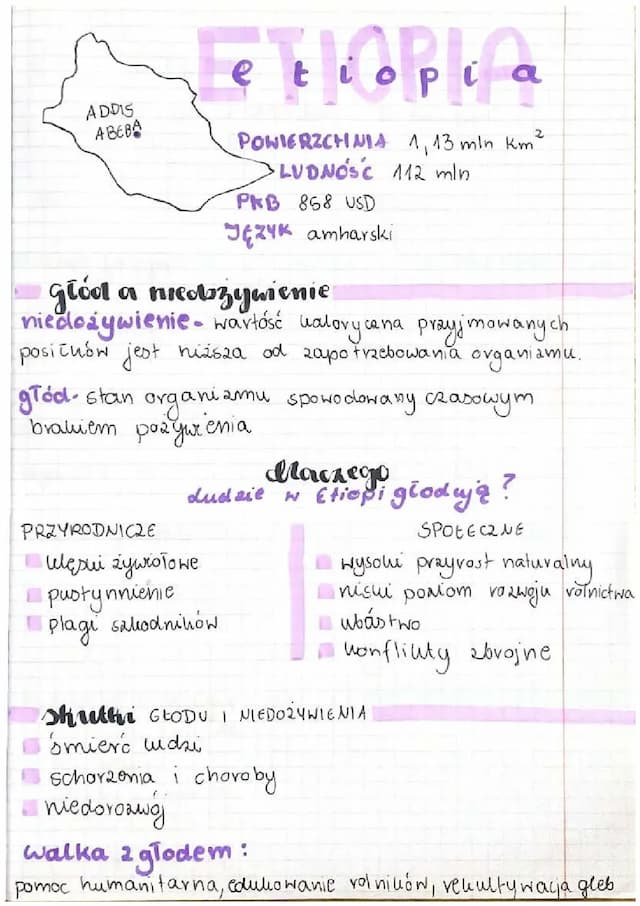 ETIOPIA
etiopia
ADDIS
ABEBA
POWIERZCHNIA 1,13 mln km²
LUDNOŚĆ 112 mln
PKB 858 USD
JĘZYK amharski
głód a niedożywienie
niedożywienie - wartość kaloryczna przyjmowanych
posiłków jest niższa od zapotrzebowania organizmu.
głód - stan organizmu spowodowany czasowym
brakiem pożywienia
dlaczego
ludzie w Etiopi głodują?
PRZYRODNICZE
klęski żywiołowe
pustynnienie
plagi szkodników
SPOŁECZNE
wysoki przyrost naturalny
niski poziom rozwoju rolnictwa
ubóstwo
konflikty zbrojne
skutki GŁODU I NIEDOŻYWIENIA
śmierć ludzi
schorzenia i choroby
niedorozwój
walka z głodem:
pomoc humanitarna, edukowanie rolników, rekultywacja gleb